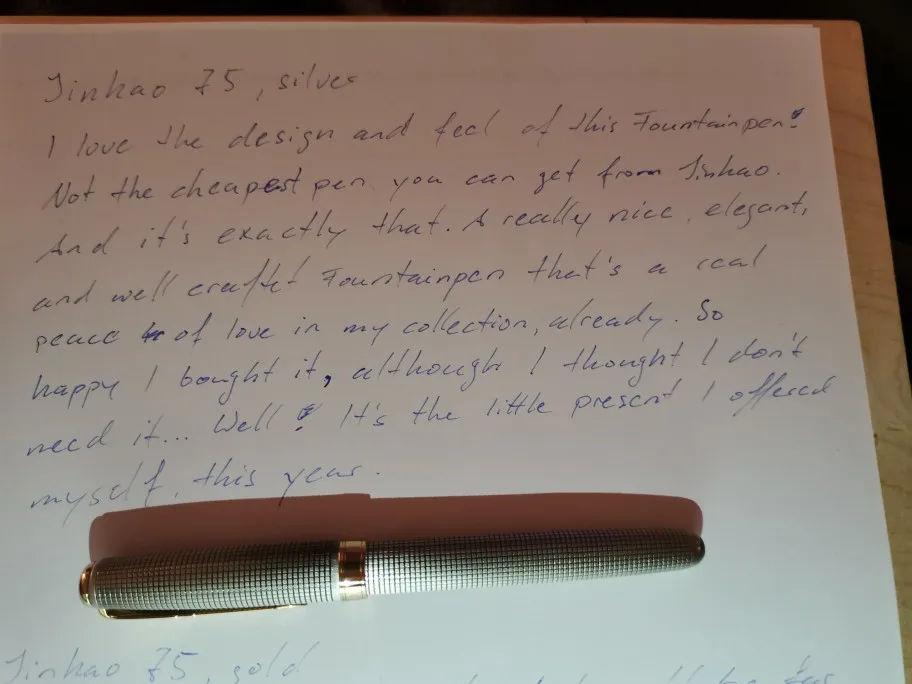 Jinhao 75, silver
I love the design and feel of this Fountainpen!
Not the cheapest pen you can get from Jinhao.
And it's exactly that. A really nice, elegant,
and well craftet Fountainpen that's a real
peace of love in my collection, already. So
happy I bought it, although I thought I don't
need it... Well! It's the little present I offered
myself, this year.
Jinhao 75, gold